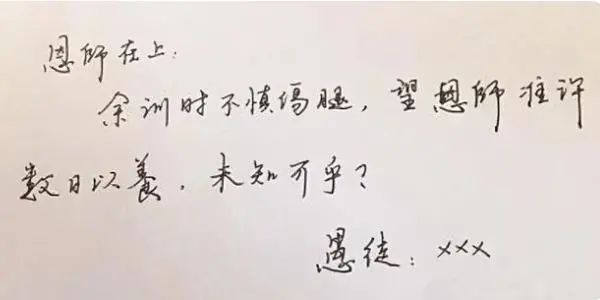 恩師在上：
余训时不慎傷腿，望恩師准许
数日以養，未知可乎？
愚徒：xxx